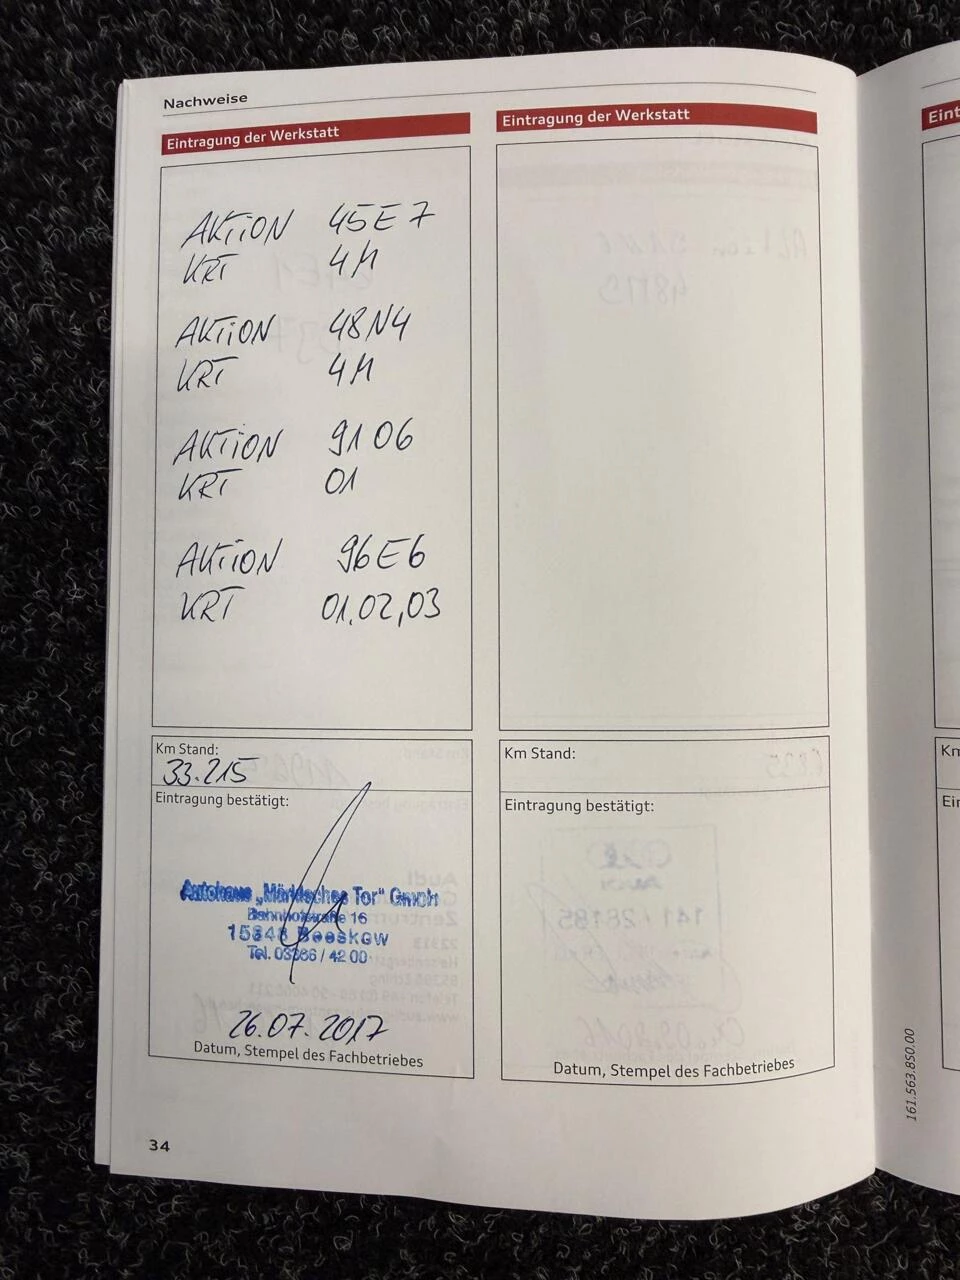 Nachweise
Eintragung der Werkstatt
AKTiON 45E7
KRT 4M
AKTiON 48N4
KRT 4M
AKTiON 9106
KRT 01
AKTiON 96E6
KRT 01,02,03
Km Stand:
33.215
Eintragung bestätigt:
Autohaus „Märkisches Tor" GmbH
Bahnhofstraße 16
15848 Beeskow
Tel. 03366 / 42 00
26.07.2017
Datum, Stempel des Fachbetriebes
Eintragung der Werkstatt
Km Stand:
Eintragung bestätigt:
Datum, Stempel des Fachbetriebes
34
161.563.850.00
Eint
Km
Ein